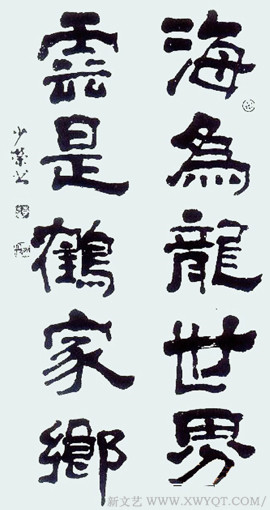 海為龍世界
雲是鶴家鄉
少榮書
新文艺 / WWW.XWYQT.COM